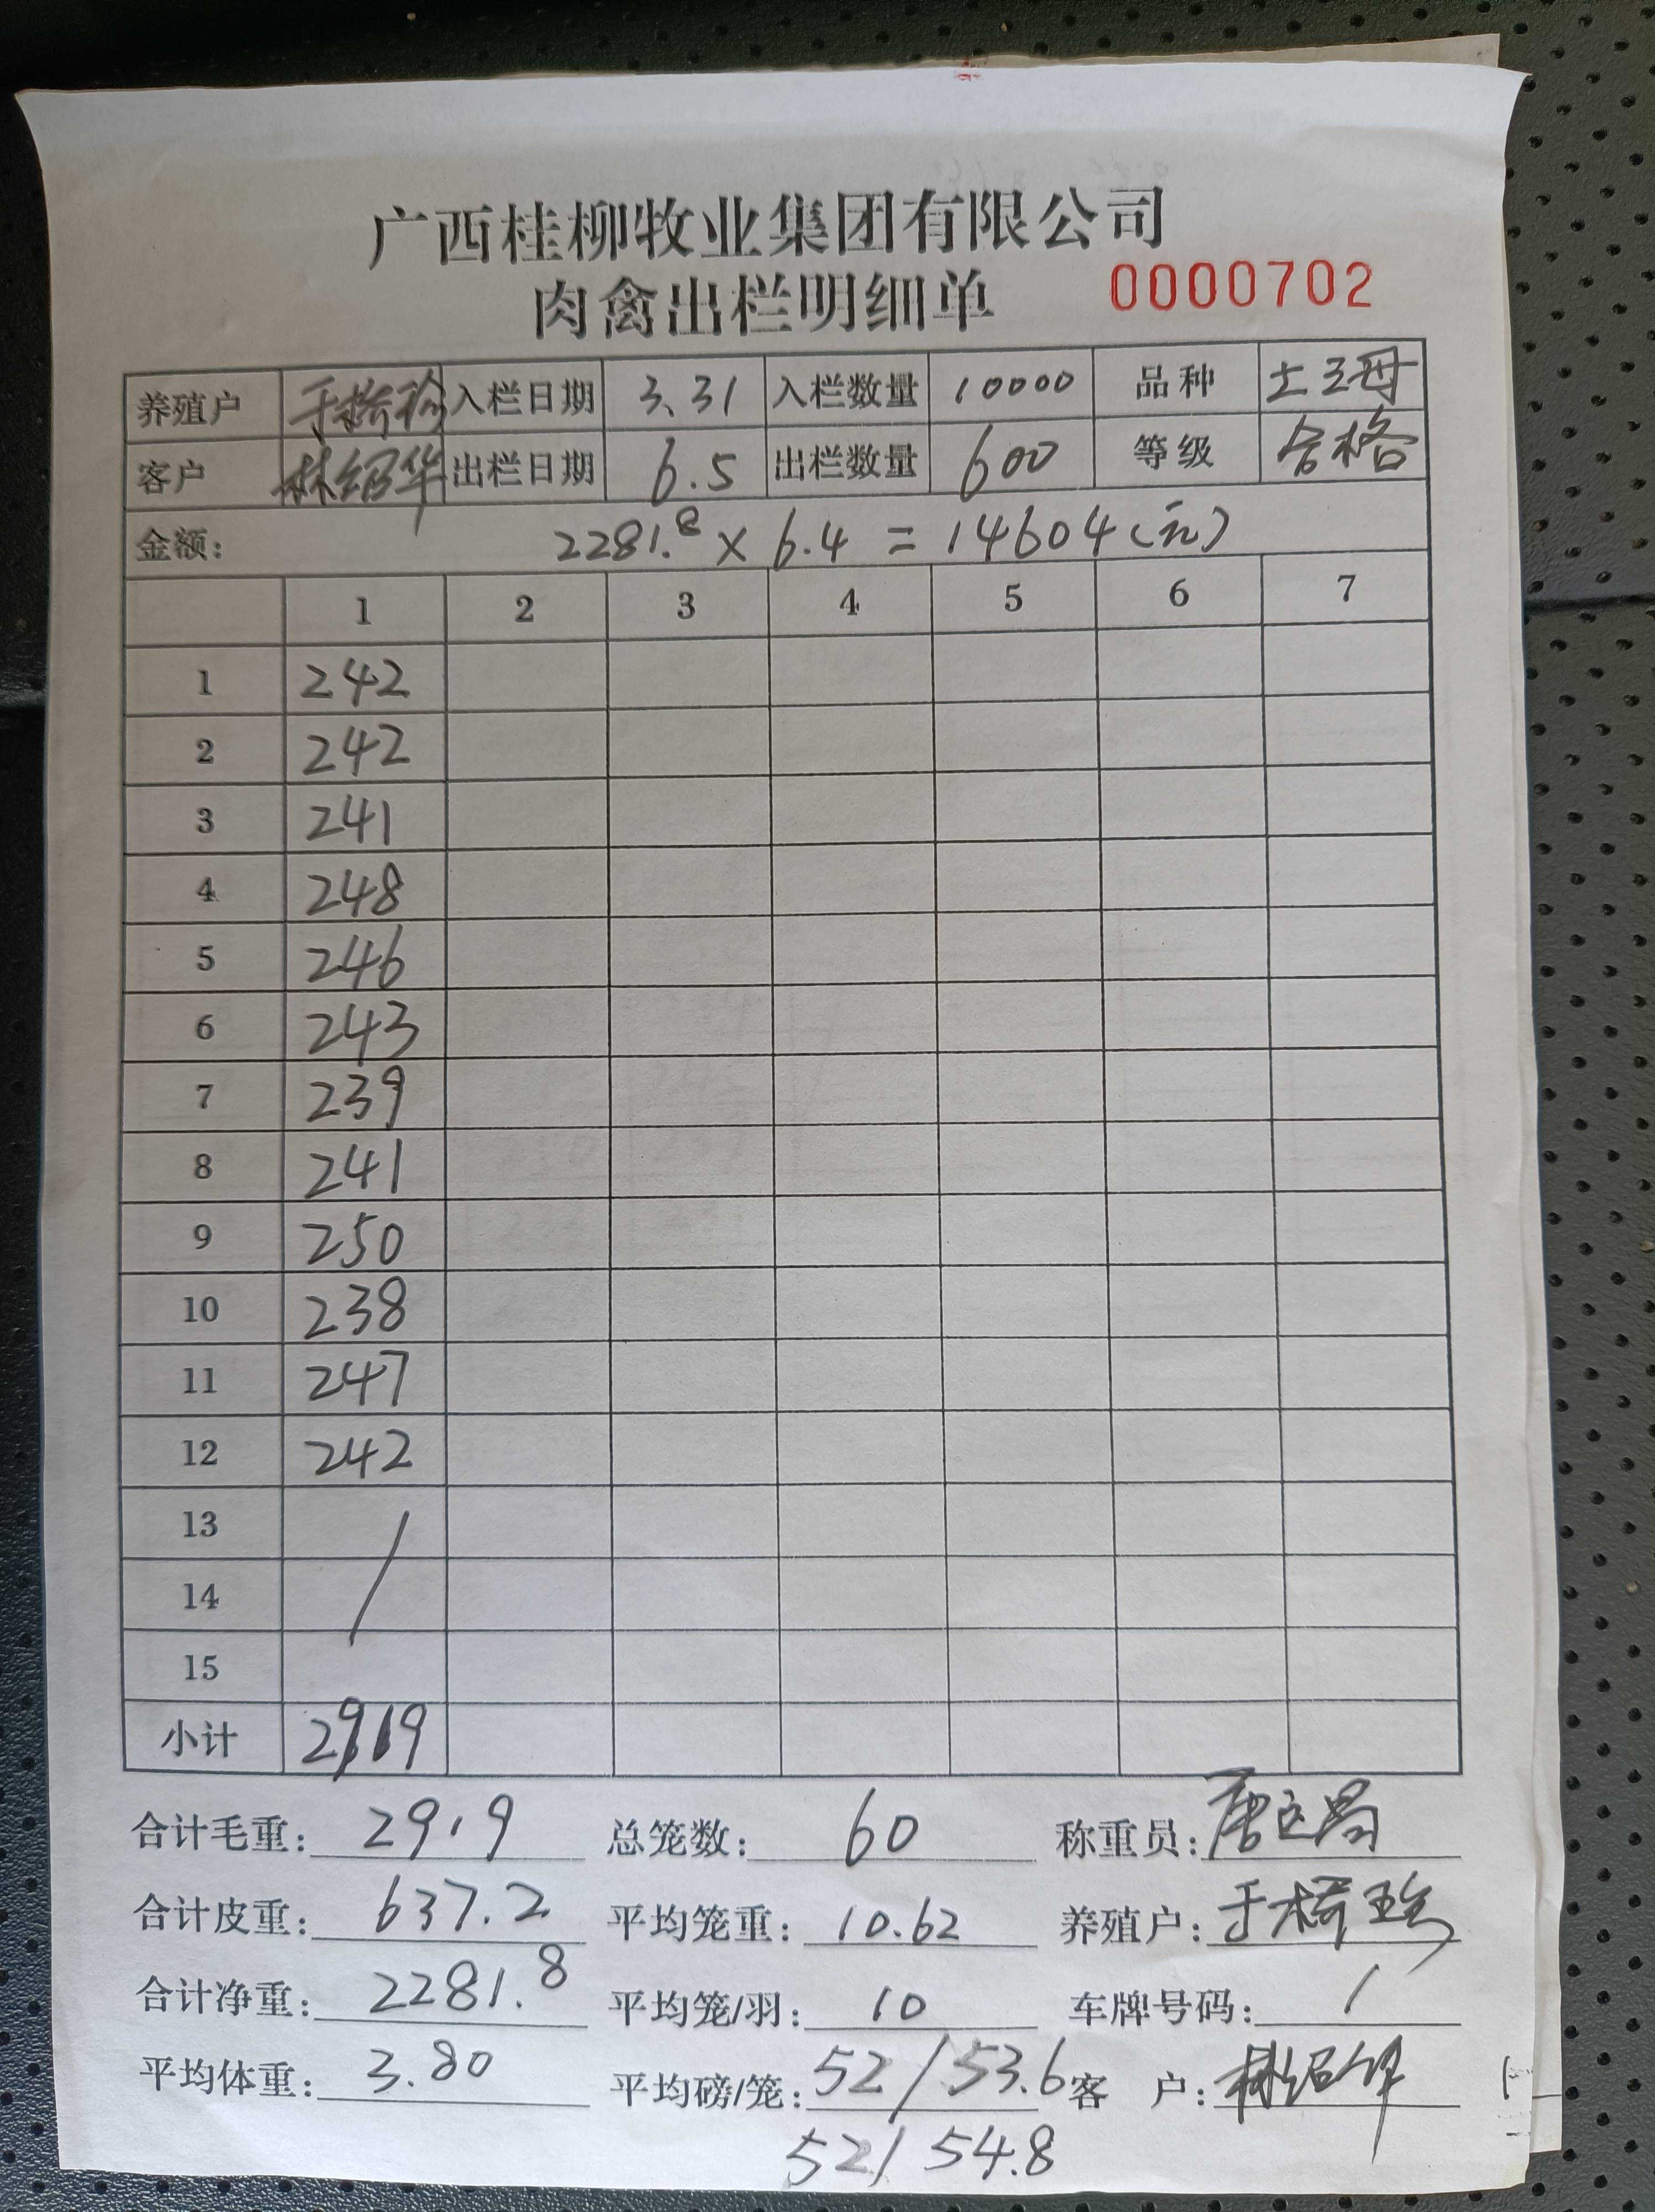 广西桂柳牧业集团有限公司
肉禽出栏明细单 0000702
养殖户 于桥珍 入栏日期 3.31 入栏数量 10000 品种 土3母
客户 林绍华 出栏日期 6.5 出栏数量 600 等级 合格
金额: 2281.8 × 6.4 = 14604(元)
1 2 3 4 5 6 7
1 242
2 242
3 241
4 248
5 246
6 243
7 239
8 241
9 250
10 238
11 247
12 242
13
14
15
小计 2919
合计毛重: 2919 总笼数: 60 称重员:
合计皮重: 637.2 平均笼重: 10.62 养殖户:
合计净重: 2281.8 平均笼/羽: 10 车牌号码: /
平均体重: 3.80 平均磅/笼: 52/53.6 客 户: 林绍华
52/54.8